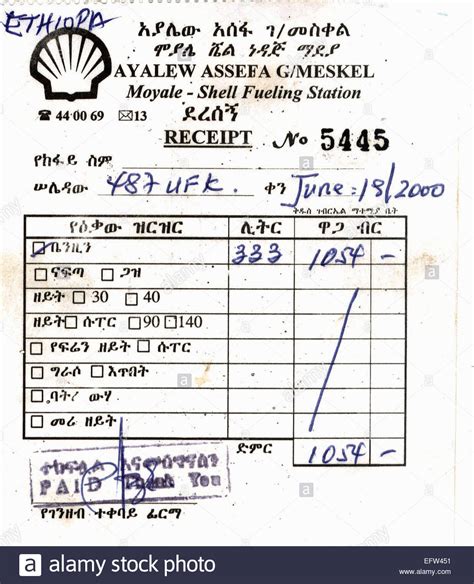 ETHIOPIA
አያሌው አሰፋ ገ/መስቀል
ሞያሌ ሼል ነዳጅ ማደያ
AYALEW ASSEFA G/MESKEL
Moyale - Shell Fueling Station
☎ 44 00 69 ✉13 ደረሰኝ
RECEIPT No 5445
የከፋይ ስም
ሠሌዳው 487 UFK. ቀን June: 19/2000
ቅዱስ ገብርኤል ማተሚያ ቤት
የዕቃው ዝርዝር ሊትር ዋጋ ብር
ቤንዚን 333 1054 -
ናፍጣ ጋዝ
ዘይት 30 40
ዘይት ሱፐር 90 140
የፍሬን ዘይት ሱፐር
ግራሶ እጥበት
ባትሪ ውሃ
መሪ ዘይት
ድምር 1054 -
ተከፍሏል እናመሰግናለን
PAID Thank You
የገንዘብ ተቀባይ ፊርማ
alamy stock photo
EFW451
www.alamy.com